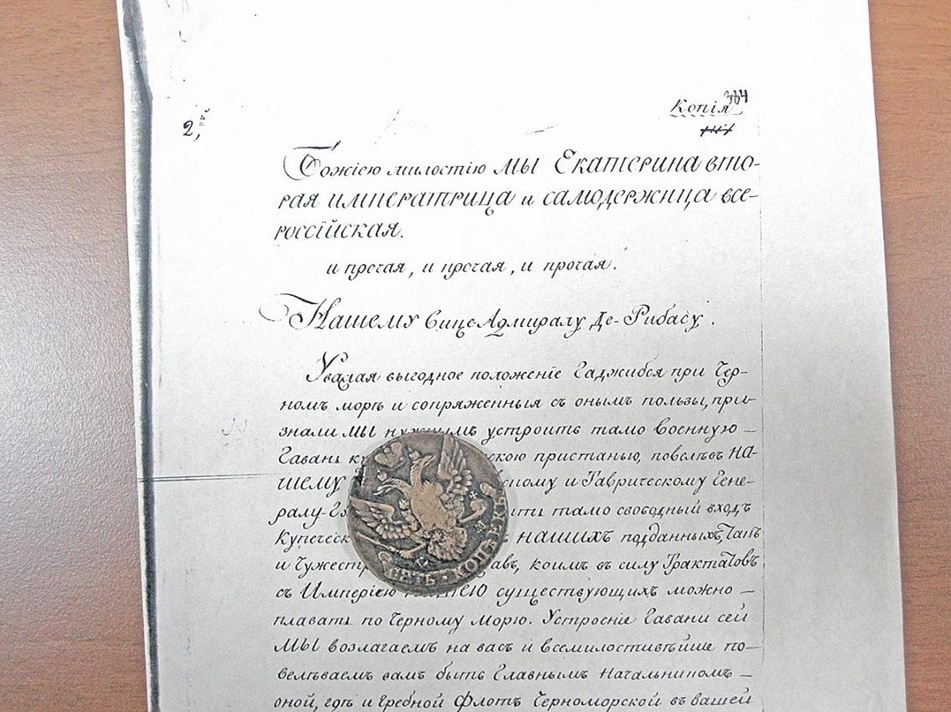 Копія 364
2,
Божіею милостію МЫ Екатерина вто-
рая императрица и самодержица все-
россійская.
и прочая, и прочая, и прочая.
Нашему Вице Адмиралу Де-Рибасу.
Уважая выгодное положеніе Гаджибея при Чер-
номъ морѣ и сопряженныя съ онымъ пользы, при-
знали МЫ нужнымъ устроить тамо военную
Гавань скою пристанью, повелѣвъ НА-
ШЕМУ и Таврическому Гене-
ралу тамо свободный входъ
Купеческ НАШИХЪ подданныхъ, такъ
и чужестр коимъ въ силу трактатовъ
съ Имперіею НАШЕЮ существующихъ можно
плавать по Черному Морю. Устроеніе Гавани сей
МЫ возлагаемъ на васъ и всемилостивѣйше по-
велѣваемъ вамъ быть Главнымъ Начальникомъ
оной, гдѣ и гребной Флотъ Черноморской въ вашей
ПЯТЬ КОПѢЕКЪ